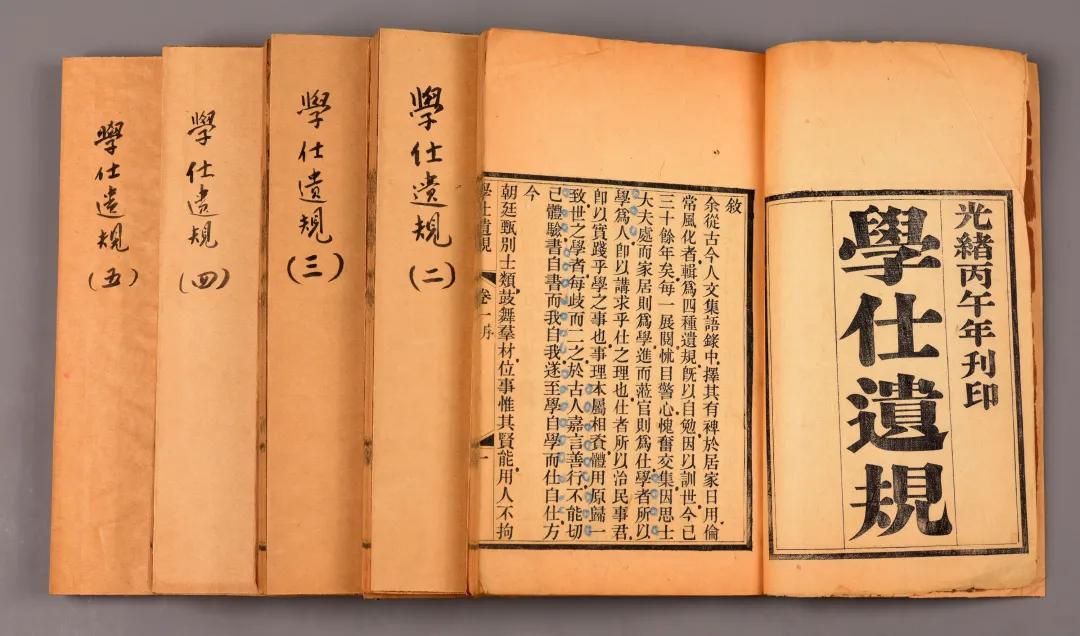 光緒丙午年刊印
學仕遺規
敘
余從古今人文集語錄中擇其有裨於居家日用倫
常風化者輯為四種遺規旣以自勉因以訓世今已
三十餘年矣每一展閱怵目警心愧奮交集因思士
大夫處而家居則為學進而蒞官則為仕學者所以
學為人卽以講求乎仕之理也仕者所以治民事君
卽以實踐乎學之事也事理本屬相資體用原歸一
致世之學者每歧而二之於古人嘉言善行不能切
己體驗書自書而我自我遂至學自學而仕自仕方
今
朝廷甄別士類鼓舞羣材位事惟其賢能用人不拘
學仕遺規 卷一序 一
學仕遺規(二)
學仕遺規(三)
學仕遺規(四)
學仕遺規(五)